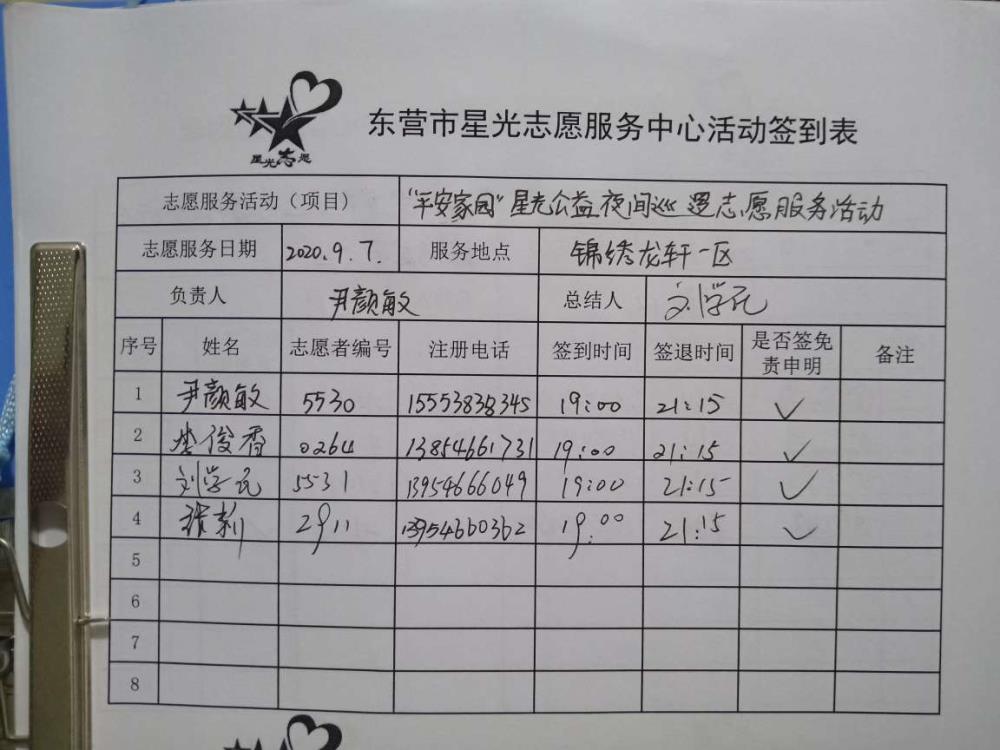 星光志愿
东营市星光志愿服务中心活动签到表
志愿服务活动（项目） "平安家园"星光公益夜间巡逻志愿服务活动
志愿服务日期 2020.9.7. 服务地点 锦绣龙轩一区
负责人 尹颜敏 总结人 刘学元
序号 姓名 志愿者编号 注册电话 签到时间 签退时间 是否签免责申明 备注
1 尹颜敏 5530 15553838345 19:00 21:15 ✓
2 娄俊香 0264 13854661731 19:00 21:15 ✓
3 刘学元 5531 13954666049 19:00 21:15 ✓
4 张莉 2911 13954660362 19:00 21:15 ✓
5
6
7
8